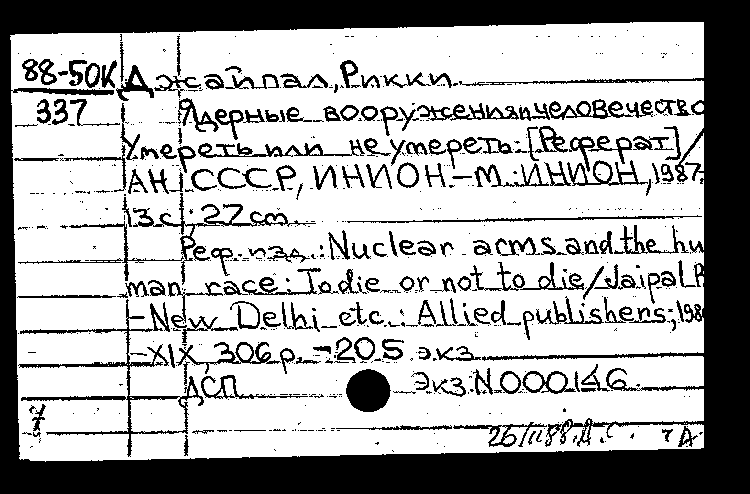 88-50К Джайпал, Рикки
337 Ядерные вооружения и человечество
Умереть или не умереть: [Реферат] /
АН СССР, ИНИОН.-М.: ИНИОН, 1987.
13 с.; 27 cm.
Реф. изд.: Nuclear acms and the hu
man race: To die or not to die / Jaipal R
-New Delhi etc.: Allied publishers; 198
-XIX, 306 p. -205 экз
ДСП Экз. N 000146.
7
26/II 88. А.С.